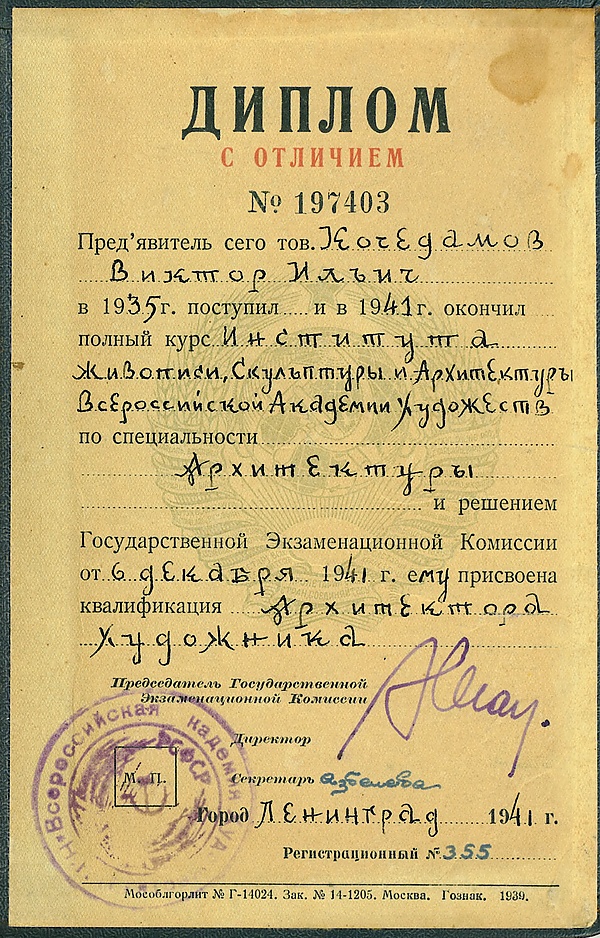 ДИПЛОМ
С ОТЛИЧИЕМ
№ 197403
Пред'явитель сего тов. Кочедамов
Виктор Ильич
в 1935 г. поступил и в 1941 г. окончил
полный курс Института
Живописи, Скульптуры и Архитектуры
Всероссийской Академии Художеств
по специальности
Архитектуры
и решением
Государственной Экзаменационной Комиссии
от 6 декабря 1941 г. ему присвоена
квалификация Архитектора
Художника
Председатель Государственной
Экзаменационной Комиссии
Директор
М. П.
Секретарь
Город Ленинград 1941 г.
Регистрационный № 355
Всероссийская
РСФСР
Мособлгорлит № Г-14024. Зак. № 14-1205. Москва. Гознак. 1939.